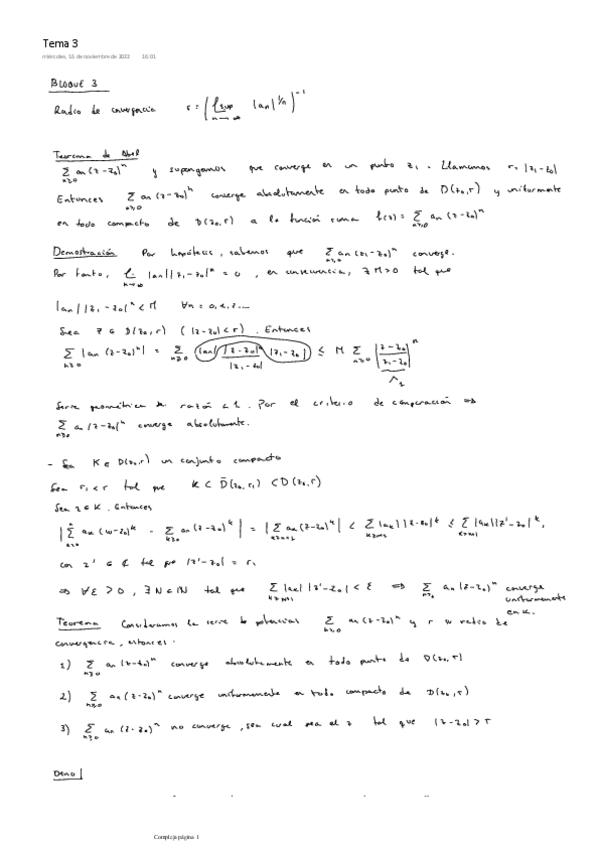 Tema 3
miércoles, 16 de noviembre de 2022 16:01
Bloque 3
Radio de convergencia r = ( lim sup_{n→∞} |an|^{1/n} )^{-1}
Teorema de Abel
Σ_{n≥0} an (z-z0)^n y supongamos que converge en un punto z1. Llamemos r = |z1-z0|
Entonces Σ_{n≥0} an (z-z0)^n converge absolutamente en todo punto de D(z0,r) y uniformemente
en todo compacto de D(z0,r) a la función suma f(z) = Σ_{n≥0} an (z-z0)^n
Demostración Por hipótesis, sabemos que Σ_{n≥0} an (z1-z0)^n converge.
Por tanto, lim_{n→∞} |an| |z1-z0|^n = 0, en consecuencia, ∃ M>0 tal que
|an| |z1-z0|^n < M ∀n = 0, 1, 2, ...
Sea z ∈ D(z0,r) (|z-z0| < r). Entonces
Σ_{n≥0} |an (z-z0)^n| = Σ_{n≥0} |an| |z-z0|^n / |z1-z0| |z1-z0| ≤ M Σ_{n≥0} |z-z0 / z1-z0|^n
Serie geométrica de razón < 1. Por el criterio de comparación ⇒
Σ_{n≥0} an (z-z0)^n converge absolutamente.
- Sea K ∈ D(z0,r) un conjunto compacto
Sea r1 < r tal que K ⊂ D̄(z0,r1) ⊂ D(z0,r)
Sea z ∈ K. Entonces
|Σ_{k=0}^n ak (w-z0)^k - Σ_{k≥0} ak (z-z0)^k| = |Σ_{k≥n+1} ak (z-z0)^k| < Σ_{k≥n+1} |ak| |z-z0|^k ≤ Σ_{k≥n+1} |ak| |z'-z0|^k,
con z' ∈ ℂ tal que |z'-z0| = r1
⇒ ∀ε > 0, ∃ N ∈ ℕ tal que Σ_{k≥n+1} |ak| |z'-z0| < ε ⇒ Σ_{n≥0} an (z-z0)^n converge
uniformemente
en K.
Teorema Consideramos la serie de potencias Σ_{n≥0} an (z-z0)^n y r su radio de
convergencia, entonces:
1) Σ_{n≥0} an (z-z0)^n converge absolutamente en todo punto de D(z0,r)
2) Σ_{n≥0} an (z-z0)^n converge uniformemente en todo compacto de D(z0,r)
3) Σ_{n≥0} an (z-z0)^n no converge, sea cual sea el z tal que |z-z0| > r
Demo
Compleja página 1